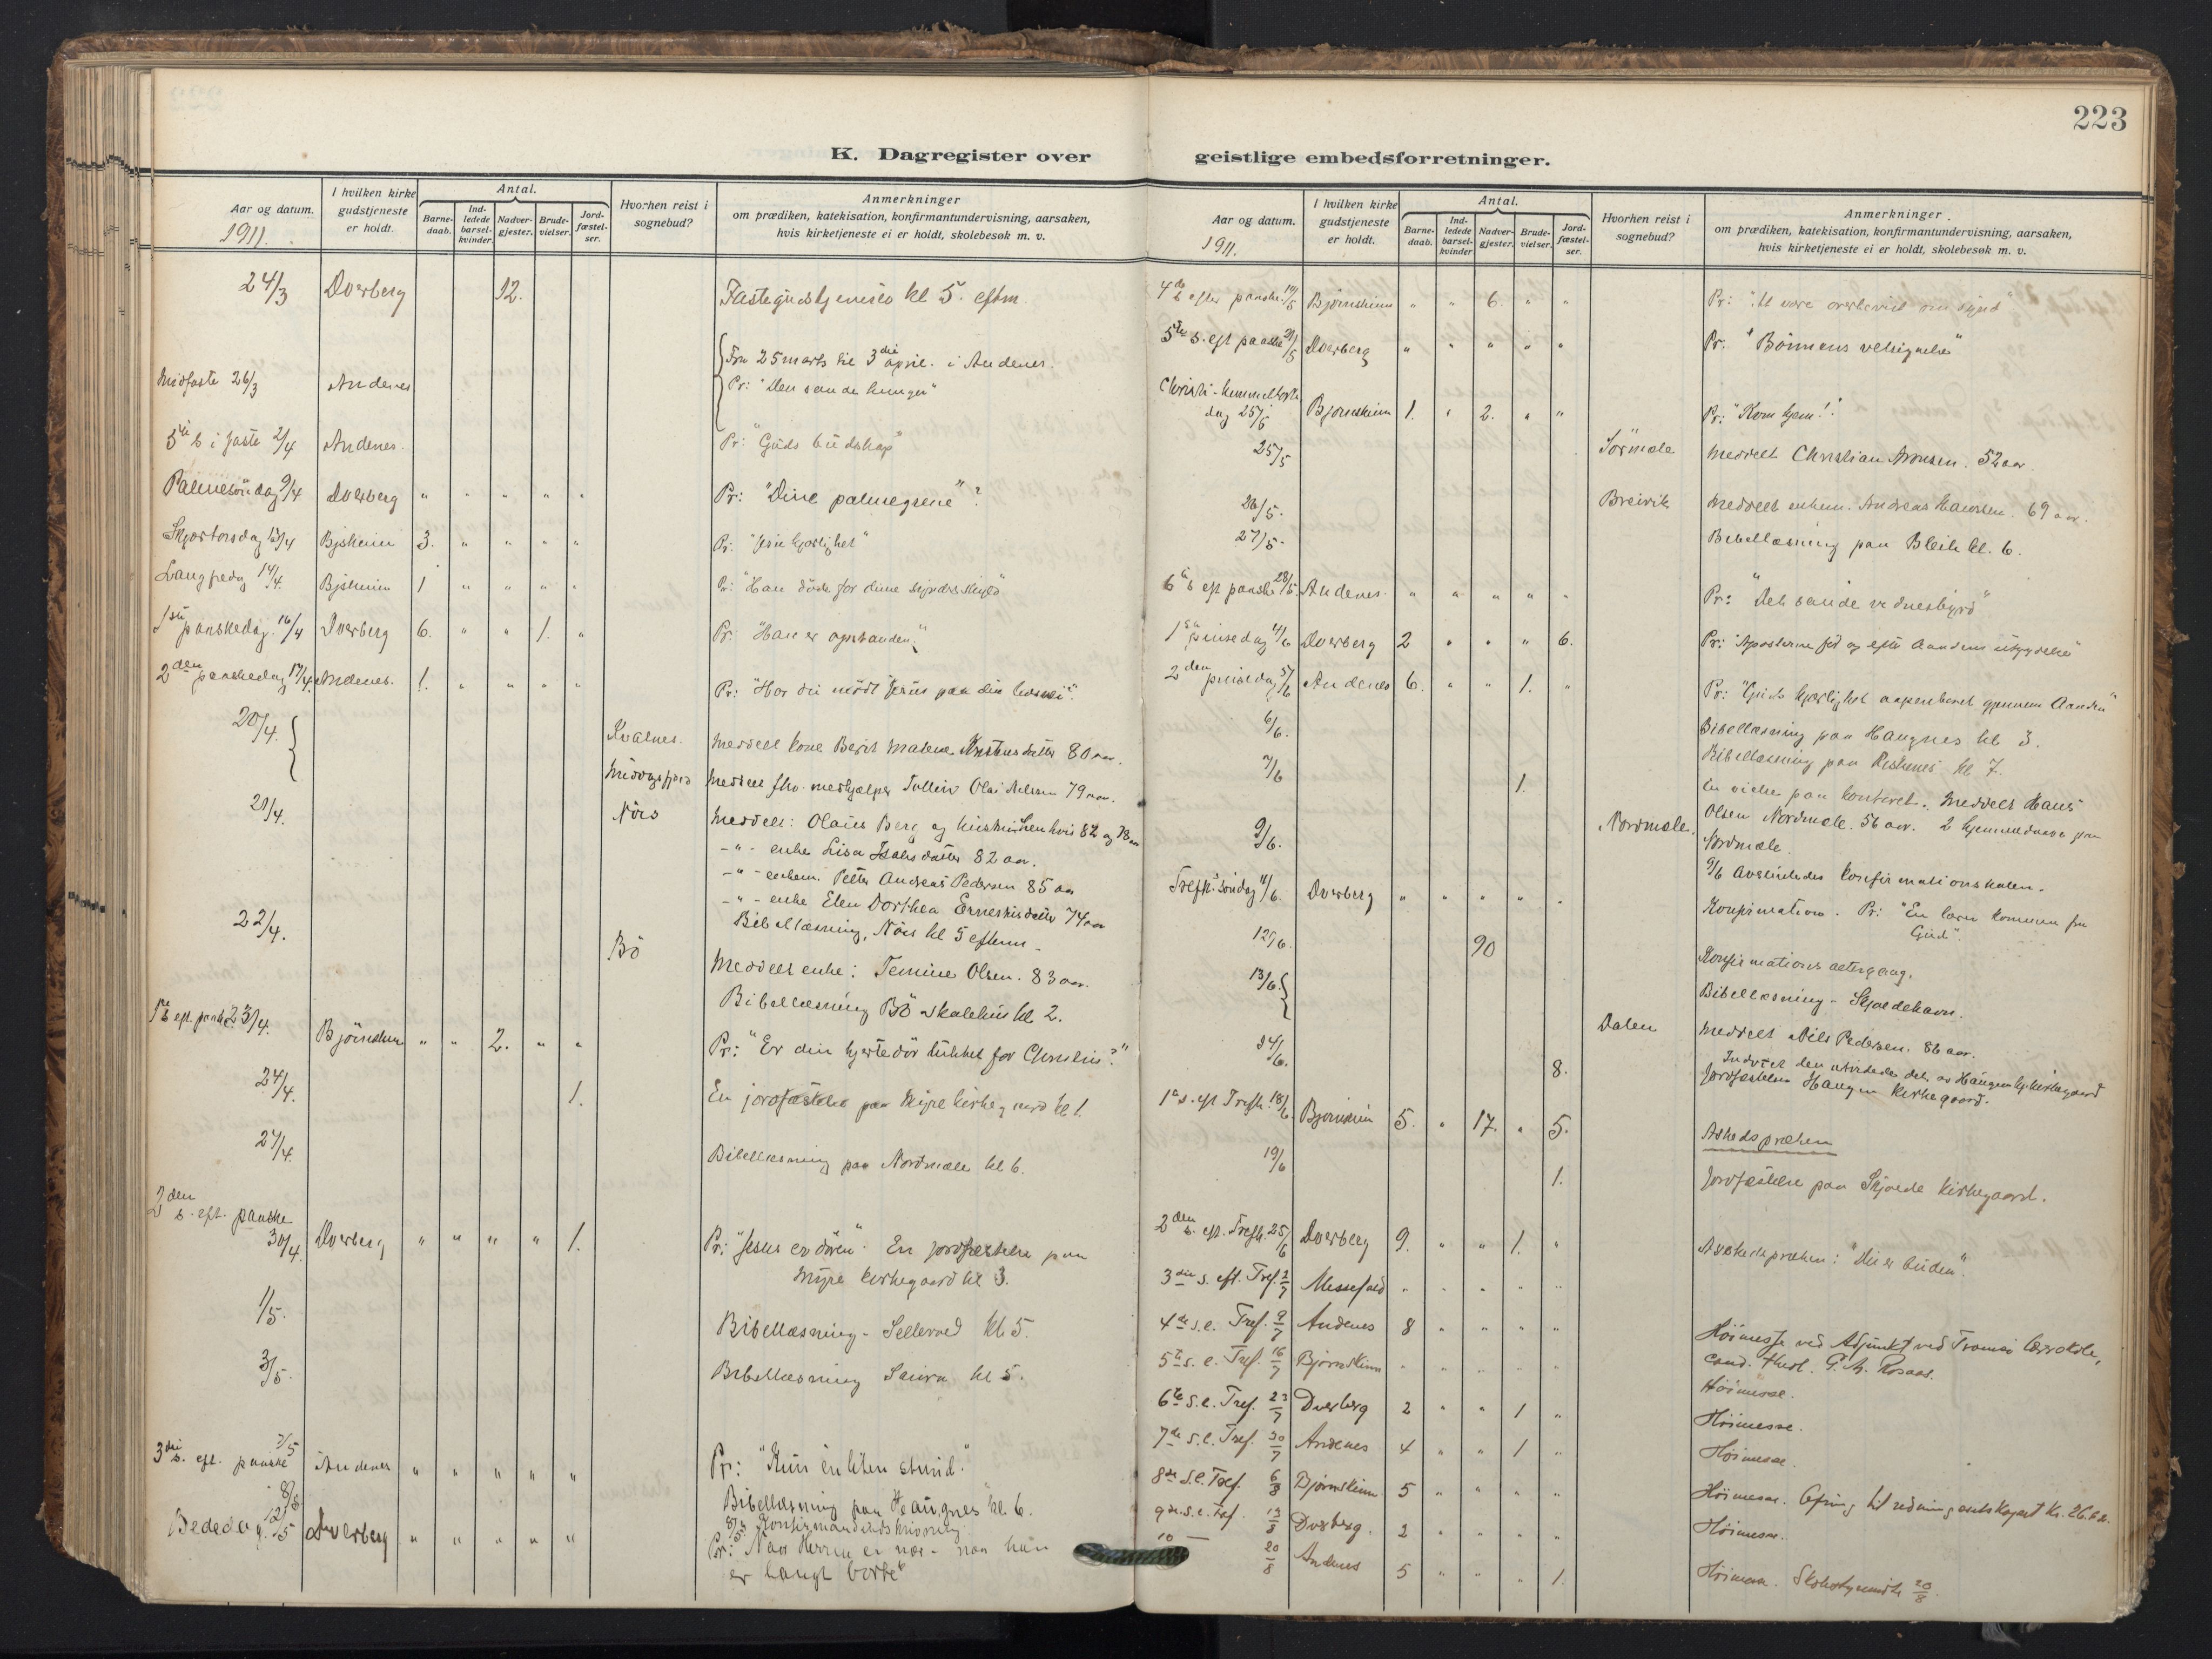 223
K. Dagregister over
geistlige embedsforretninger.
Aar og datum.
1911.
I hvilken kirke
gudstjeneste
er holdt.
Antal.
Barne-
daab.
Ind-
ledede
barsel-
kvinder.
Nadver-
gjester.
Brude-
vielser.
Jord-
fæstel-
ser.
Hvorhen reist i
sognebud?
Anmerkninger
om prædiken, katekisation, konfirmantundervisning, aarsaken,
hvis kirketjeneste ei er holdt, skolebesøk m. v.
24/3 Dverberg 12. Fastegudstjeneste kl 5. eftm.
Fra 25 marts til 3die april. i Andenes.
Midfaste 26/3 Andenes Pr: "Den sande hunger"
5te s i faste 2/4 Andenes. Pr: "Guds budskap"
Palmesöndag 9/4 Dverberg " " " " " Pr: "Dine palmegrene"?
Skjærtorsdag 13/4 Bjskinn 3. " " " " Pr: "Jesu kjærlighet"
Langfredag 14/4. Bjskinn 1 " " " " Pr: "Han döde for dine synders skyld"
1ste paaskedag. 16/4 Dverberg 6. " " 1. " Pr: "Han er opstanden."
2den paaskedag 17/4. Andenes. 1. " " " " Pr: "Har du mödt Jesus paa din livsvei".
20/4. Kvalnes. Meddelt kone Berit Malene 80 aar.
Meddelt fhv. medhjælper Tollin Olai Nilssen 79 aar.
21/4. Nöis Meddelt: Olaus Berg og hustru 82 og 78 aar
- " - enke Lisa 82 aar.
- " - enkem. Petter Andreas Pedersen 85 aar
- " - enke Elen Dorthea 74 aar
Bibellæsning, Nöis kl 5 efterm.
22/4. Bö Meddelt enke: Olsen. 83 aar.
Bibellæsning Bö skolehus kl 2.
1ste s eft. paaske 23/4. Björnskinn " " 2. " " Pr: "Er din hjertedör lukket for Christus?"
24/4. 1. En jordfæstelse paa Myre kirkegaard kl 1.
27/4. Bibellæsning paa Nordmæle kl 6.
2den s. eft. paaske
30/4. Dverberg " " " " 1. Pr: "Jesus er dören". En jordfæstelse paa
Myre kirkegaard kl 3.
1/5. Bibellæsning - kl 5.
3/5. Bibellæsning Saura kl 5.
3die s. eft. paaske 7/5 Andenes " " " " " Pr: "Kun en liten stund."
8/5 Bibellæsning paa Haugnes kl. 6.
8/5 Konfirmandindskrivning.
Bededag. 12/5 Dverberg " " " " " Pr: "Naar Herren er nær - naar han
er langt borte"
Aar og datum.
1911.
I hvilken kirke
gudstjeneste
er holdt.
Antal.
Barne-
daab.
Ind-
ledede
barsel-
kvinder
Nadver-
gjester.
Brude-
vielser.
Jord-
fæstel-
ser.
Hvorhen reist i
sognebud?
Anmerkninger.
om prædiken, katekisation, konfirmantundervisning, aarsaken,
hvis kirketjeneste ei er holdt, skolebesøk m. v.
4de s efter paaske 14/5 Björnskinn " " 6. " " Pr: "At være overbevist om synd"
5te s. eft paaske 21/5 Dverberg " " " " " Pr. "Bönnens velsignelse"
Christi-himmelfarts
dag 25/5 Bjørnskinn 1. " 2. " " Pr: "Kom hjem!".
25/5 Sörmæle Meddelt Christian 52 aar.
26/5. Breivik Meddelt enkem. Andreas Hanssen. 69 aar.
27/5. Bibellæsning paa Bleik kl. 6.
6te s eft paaske 28/5. Andenes. " " " " " Pr: "Det sande vidnesbyrd"
1ste pinsedag 4/6 Dverberg 2 " " " 6. Pr: "Apostlerne för og efter Aandens utgydelse"
2den pinsedag 5/6 Andenes 6. " " 1. " Pr: "Guds kjærlighet aapenbaret gjennem Aanden"
6/6. Bibellæsning paa Haugnes kl 3.
Bibellæsning paa kl 7.
7/6 1. En vielse paa kontoret. Meddelt Hans
9/6. Nordmæle. Olsen Nordmæle. 56 aar. 2 hjemmedaab paa
Nordmæle.
9/6 Avsluttedes konfirmationsskolen.
Trefh. söndag 11/6. Dverberg " " " " " Konfirmation. Pr: "En lærer kommen fra
Gud".
12/6. 90 Konfirmations altergang.
13/6. Bibellæsning - Skjoldehavn.
Dalen Meddelt Nils Pedersen. 86 aar.
14/6. 8. Indviet den utvidede del av Haugen kirkegaard
Jordfæstelse Haugen kirkegaard.
1ste s. eft Trefh. 18/6. Bjørnskinn 5. " 17. " 5. Avskedspræken
19/6 1. Jordfæstelse paa Skjolde kirkegaard.
2den s. eft. Trefh. 25/6 Dverberg 9. " " 1. " Avskedspræken: "Du er buden".
3die s. eft. Tref. 2/7 Messefald " " " " "
4de s.e. Tref. 9/7 Andenes 8 " " " " Höimesse ved Adjunkt ved Tromsö lærerskole,
cand. theol. P. A. Rosaas.
5te s. e. Tref. 16/7 Bjørnskinn " " " " " Höimesse.
6te s.e. Tref. 23/7 Dverberg 2 " " 1 " Höimesse.
7de s.e. Tref. 30/7 Andenes 4 " " 1 " Höimesse.
8de s.e. Tref. 6/8 Bjørnskinn 5 " " " " Höimesse. Ofring til redningsselskapet Kr. 26.62.
9de s.e. Tref. 13/8 Dverberg. 2 " " " " Höimesse.
10 — 20/8 Andenes 5 " " " 1. Höimesse. 20/8.